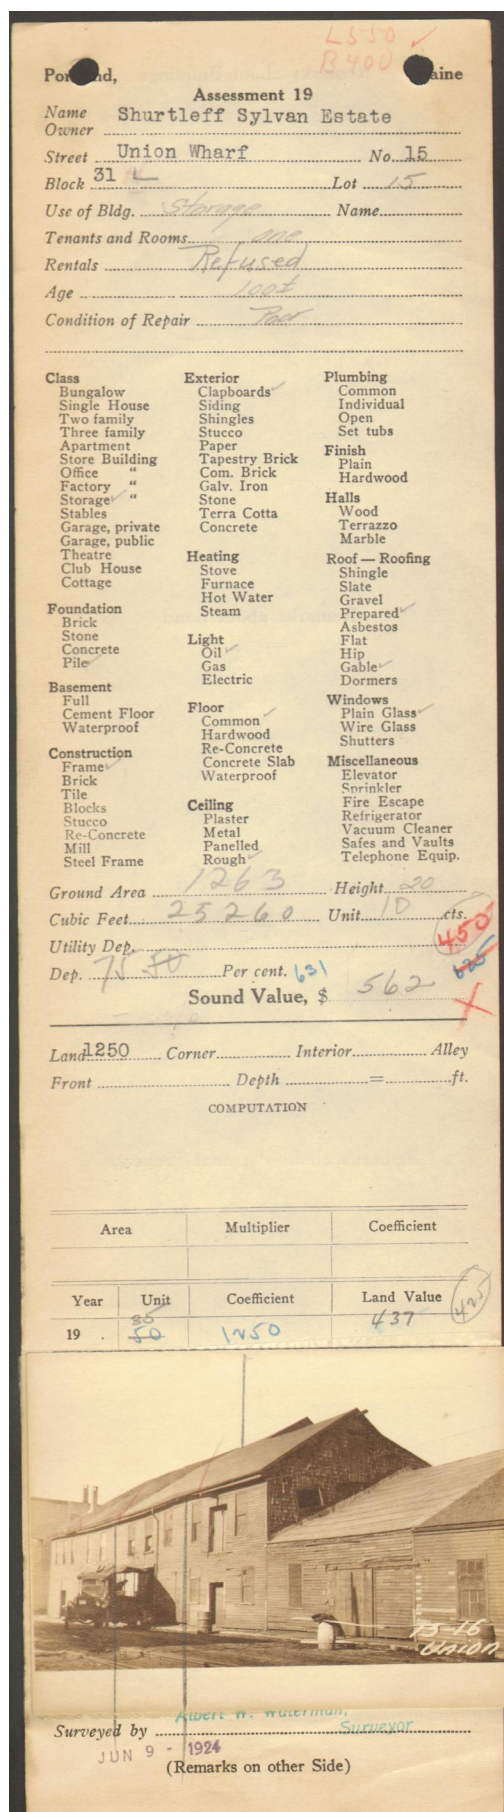 L550 ✓
B400
Po nd, aine
Assessment 19
Name Shurtleff Sylvan Estate
Owner
Street Union Wharf No. 15
Block 31 L Lot 15
Use of Bldg. Storage Name
Tenants and Rooms one
Rentals Refused
Age 100±
Condition of Repair Poor
Class
Bungalow
Single House
Two family
Three family
Apartment
Store Building
Office "
Factory "
Storage ✓ "
Stables
Garage, private
Garage, public
Theatre
Club House
Cottage
Foundation
Brick
Stone
Concrete
Pile ✓
Basement
Full
Cement Floor
Waterproof
Construction
Frame ✓
Brick
Tile
Blocks
Stucco
Re-Concrete
Mill
Steel Frame
Exterior
Clapboards ✓
Siding
Shingles
Stucco
Paper
Tapestry Brick
Com. Brick
Galv. Iron
Stone
Terra Cotta
Concrete
Heating
Stove
Furnace
Hot Water
Steam
Light
Oil ✓
Gas
Electric
Floor
Common ✓
Hardwood
Re-Concrete
Concrete Slab
Waterproof
Ceiling
Plaster
Metal
Panelled
Rough ✓
Plumbing
Common
Individual
Open
Set tubs
Finish
Plain
Hardwood
Halls
Wood
Terrazzo
Marble
Roof — Roofing
Shingle
Slate
Gravel
Prepared ✓
Asbestos
Flat
Hip
Gable ✓
Dormers
Windows
Plain Glass ✓
Wire Glass
Shutters
Miscellaneous
Elevator
Sprinkler
Fire Escape
Refrigerator
Vacuum Cleaner
Safes and Vaults
Telephone Equip.
Ground Area 1263 Height 20
Cubic Feet 25260 Unit 10 cts.
450
Utility Dep.
Dep. 75 50 Per cent. 631
Sound Value, $ 562
Land 1250 Corner Interior Alley
Front Depth = ft.
COMPUTATION
Area Multiplier Coefficient
Year Unit Coefficient Land Value 425
35
19 . 50 1250 437
15-16
UNION
Albert W. Waterman,
Surveyed by Surveyor
JUN 9 - 1924
(Remarks on other Side)